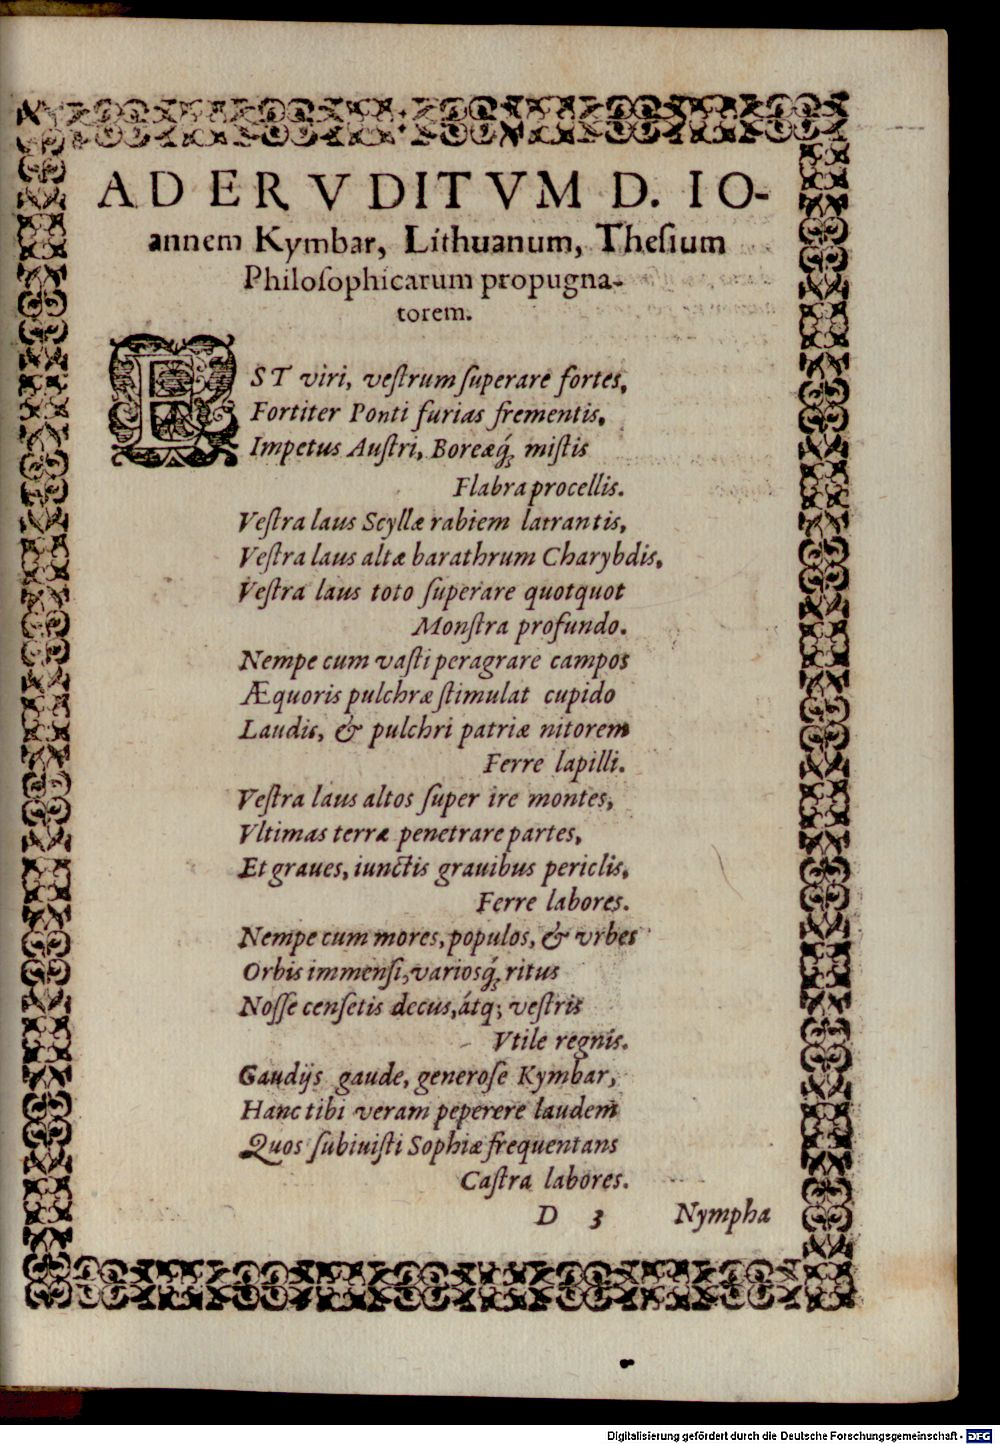 AD ERVDITVM D. IO-
annem Kymbar, Lithuanum, Thesium
Philosophicarum propugna-
torem.
EST viri, vestrum superare fortes,
Fortiter Ponti furias frementis,
Impetus Austri, Boreæq́; mistis
Flabra procellis.
Vestra laus Scyllæ rabiem latrantis,
Vestra laus altæ barathrum Charybdis,
Vestra laus toto superare quotquot
Monstra profundo.
Nempe cum vasti peragrare campos
Æquoris pulchræ stimulat cupido
Laudis, & pulchri patriæ nitorem
Ferre lapilli.
Vestra laus altos super ire montes,
Vltimas terræ penetrare partes,
Et graues, iunctis grauibus periclis,
Ferre labores.
Nempe cum mores, populos, & vrbes
Orbis immensi, variosq́; ritus
Nosse censetis decus, átq; vestris
Vtile regnis.
Gaudijs gaude, generose Kymbar,
Hanc tibi veram peperere laudem
Quos subiuisti Sophiæ frequentans
Castra labores.
D 3 Nympha
Digitalisierung gefördert durch die Deutsche Forschungsgemeinschaft - DFG